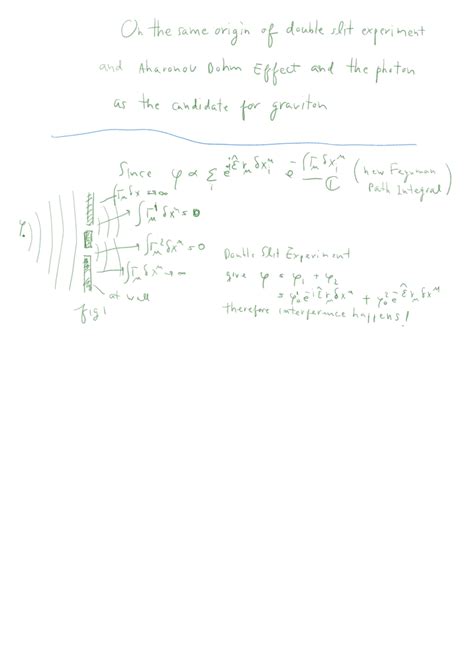 On the same origin of double slit experiment
and Aharonov Dohm Effect and the photon
as the candidate for graviton
Since φ ∝ Σ e^{i ε̂ γ_μ δx_i^μ} e^{-∫Γ_μ δx_i^μ} ① (new Feynman Path Integral)
∫Γ_μ δx → ∞
∫Γ_μ^1 δx^μ = 0
∫Γ_μ^2 δx^μ = 0
∫Γ_μ δx^μ → ∞
at wall
fig 1
Double Slit Experiment
give φ = φ_1 + φ_2
therefore interference happens!